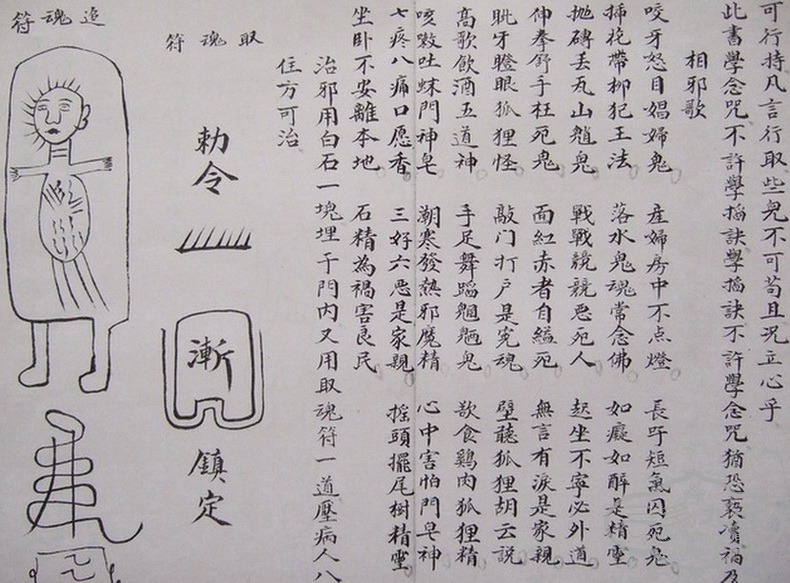 可行持凡言行取些兒不可苟且况立心乎
此書學念咒不許學搯訣學搯訣不許學念咒猶恐褻凟禍乃
相邪歌
咬牙怒目娼婦鬼 產婦房中不点燈 長吁短氣囚死鬼
揷花帶柳犯王法 落水鬼魂常念佛 如癡如醉是精靈
抛磚丢瓦山魈鬼 戰戰競競惡死人 起坐不寧必外道
伸拳舒手枉死鬼 面紅赤者自縊死 無言有淚是家親
眦牙瞪眼狐狸怪 敲门打户是冤魂 壁聽狐狸胡云説
高歌飲酒五道神 手足舞蹈魍魎鬼 飲食鷄肉狐狸精
咳嗽吐蛛門神皂 潮寒發熱邪魔精 心中害怕門皂神
七疼八痛口愿香 三好六惡是家親 摇頭擺尾樹精靈
坐卧不安離本地 石精為禍害良民
治邪用白石一塊埋于門内又用取魂符一道壓病人八
住方可治
取魂符
勅令
漸
鎮定
追魂符